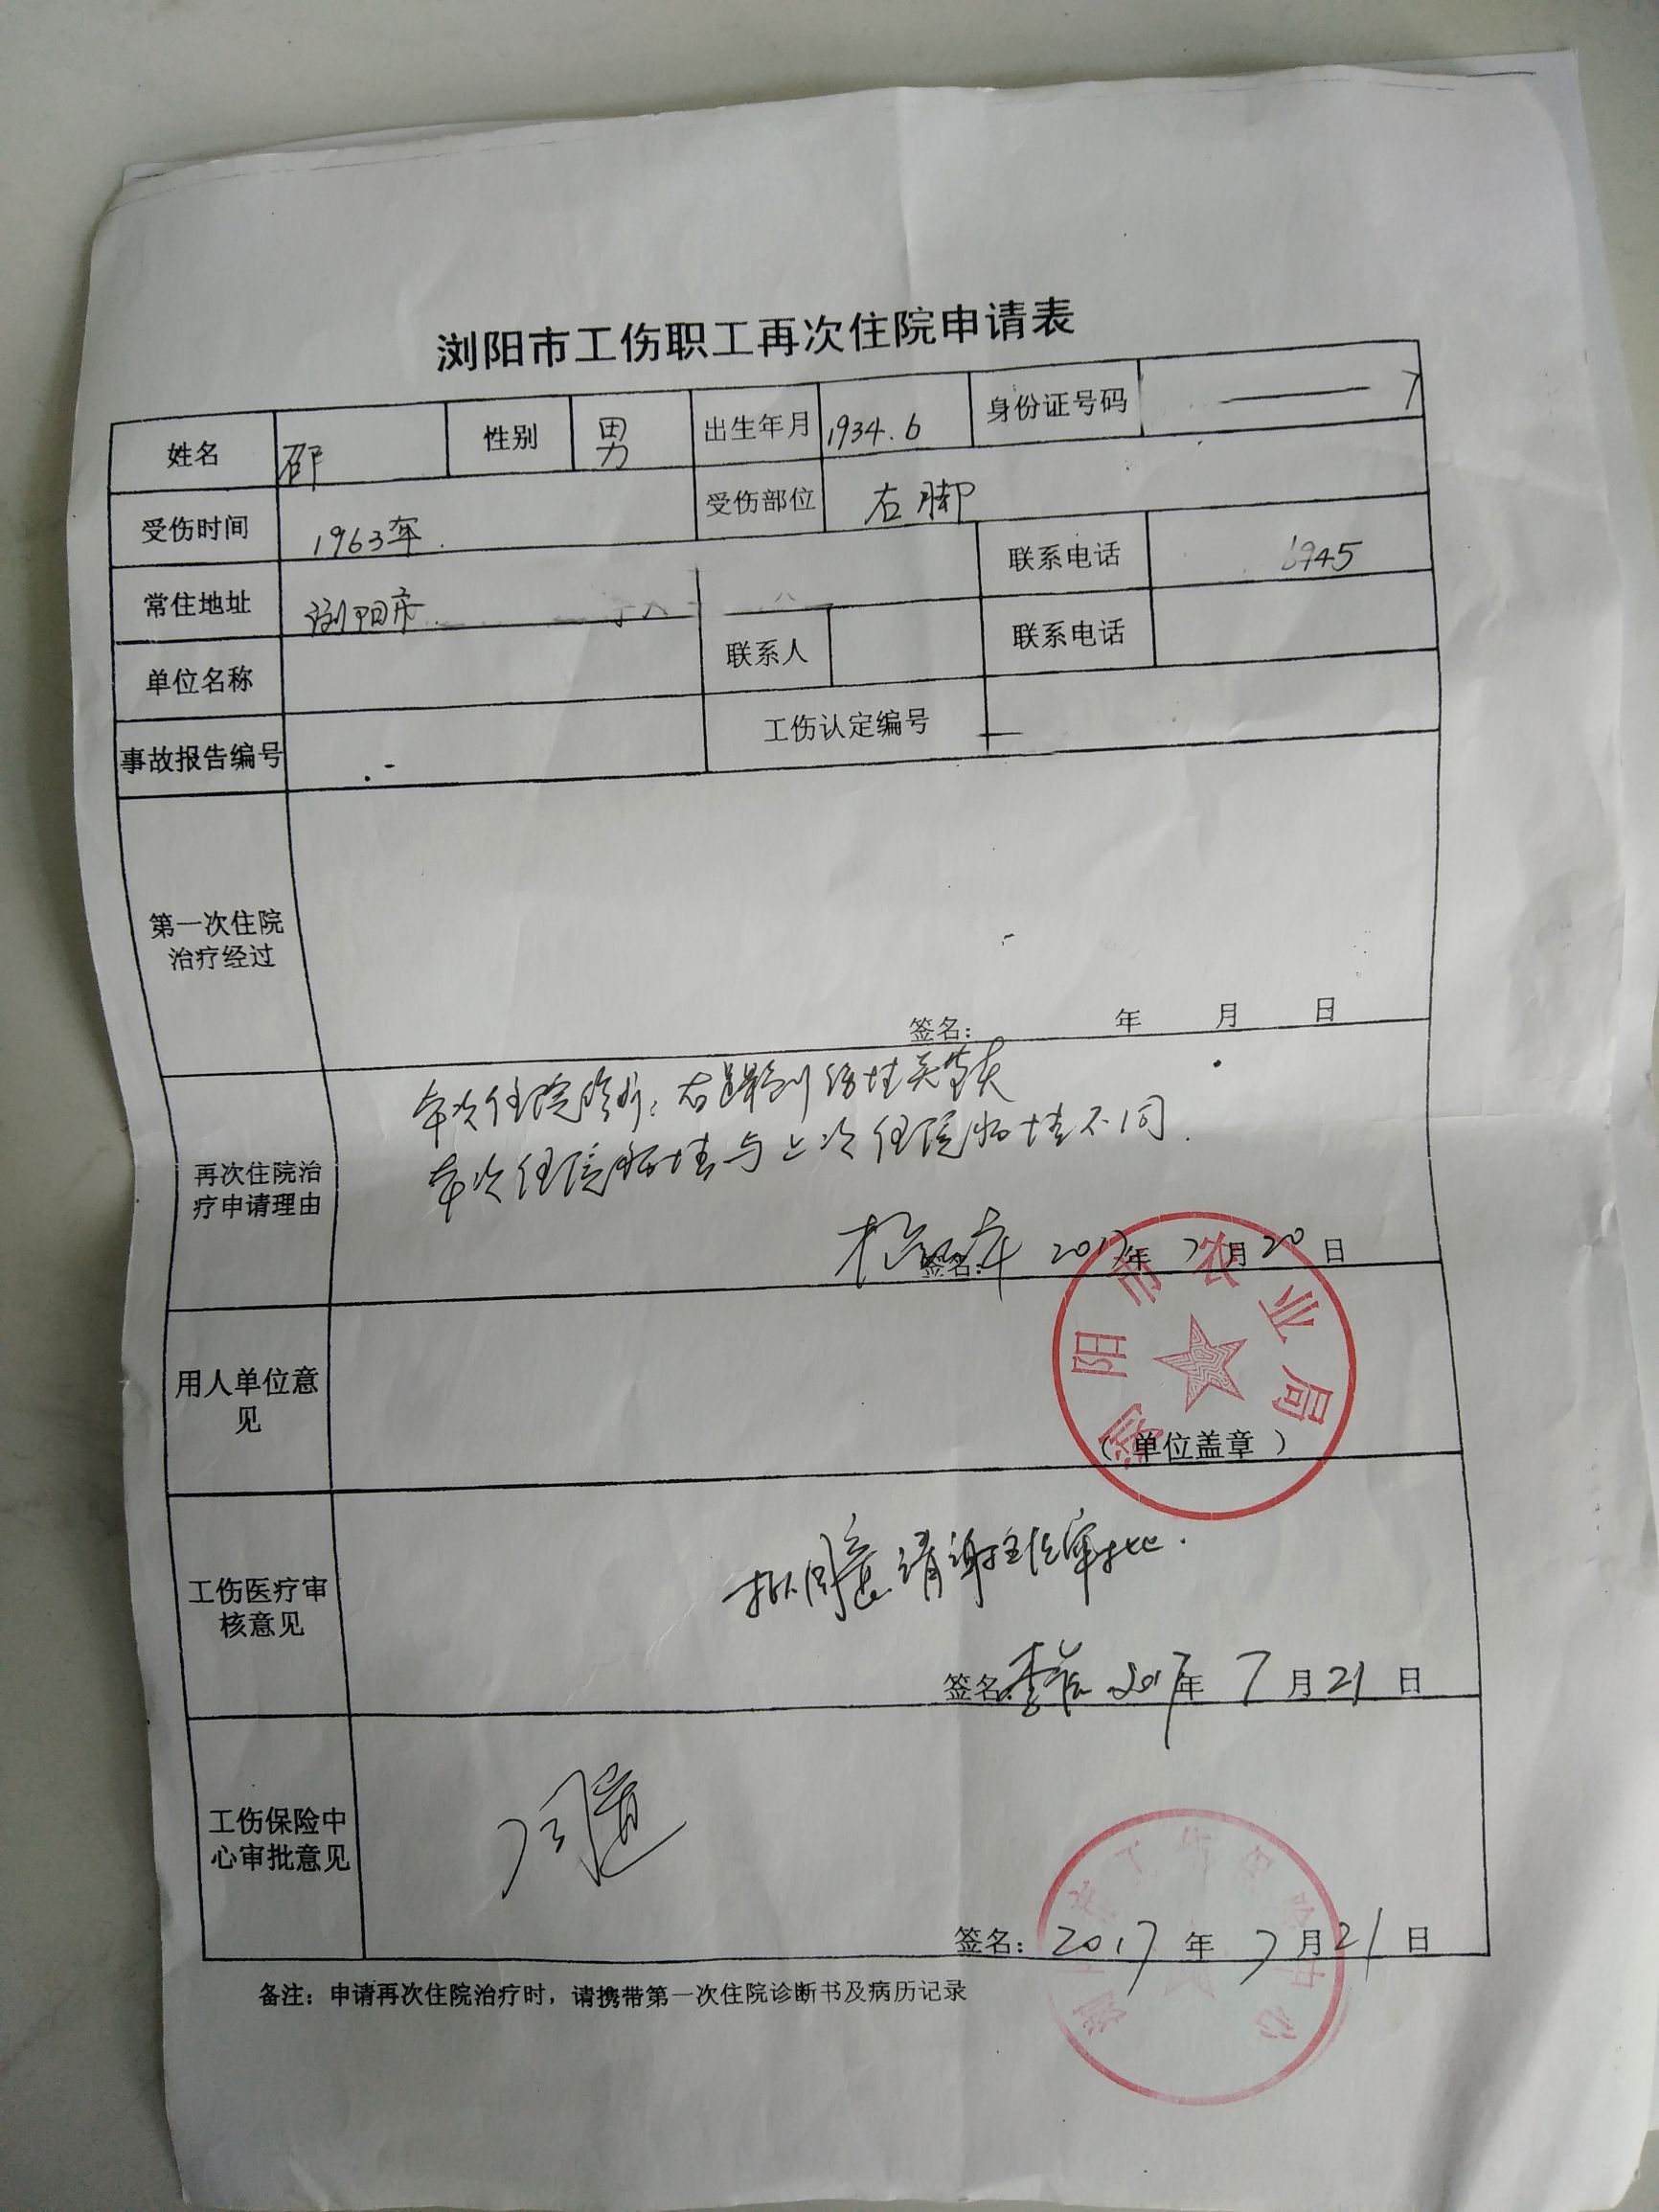 浏阳市工伤职工再次住院申请表
姓名 邵 性别 男 出生年月 1934.6 身份证号码 7
受伤时间 1963年. 受伤部位 右脚
常住地址 浏阳市 联系电话 6945
单位名称 联系人 联系电话
事故报告编号 工伤认定编号
第一次住院
治疗经过
签名: 年 月 日
本次住院诊断:右踝
本次住院病情与上次住院病情不同.
再次住院治
疗申请理由
签名: 2017年 7月20日
浏阳市农业局
用人单位意
见
(单位盖章)
拟同意请谢主任审批.
工伤医疗审
核意见
签名: 2017年 7月21日
同意
工伤保险中
心审批意见
签名: 2017年 7月21日
备注:申请再次住院治疗时,请携带第一次住院诊断书及病历记录